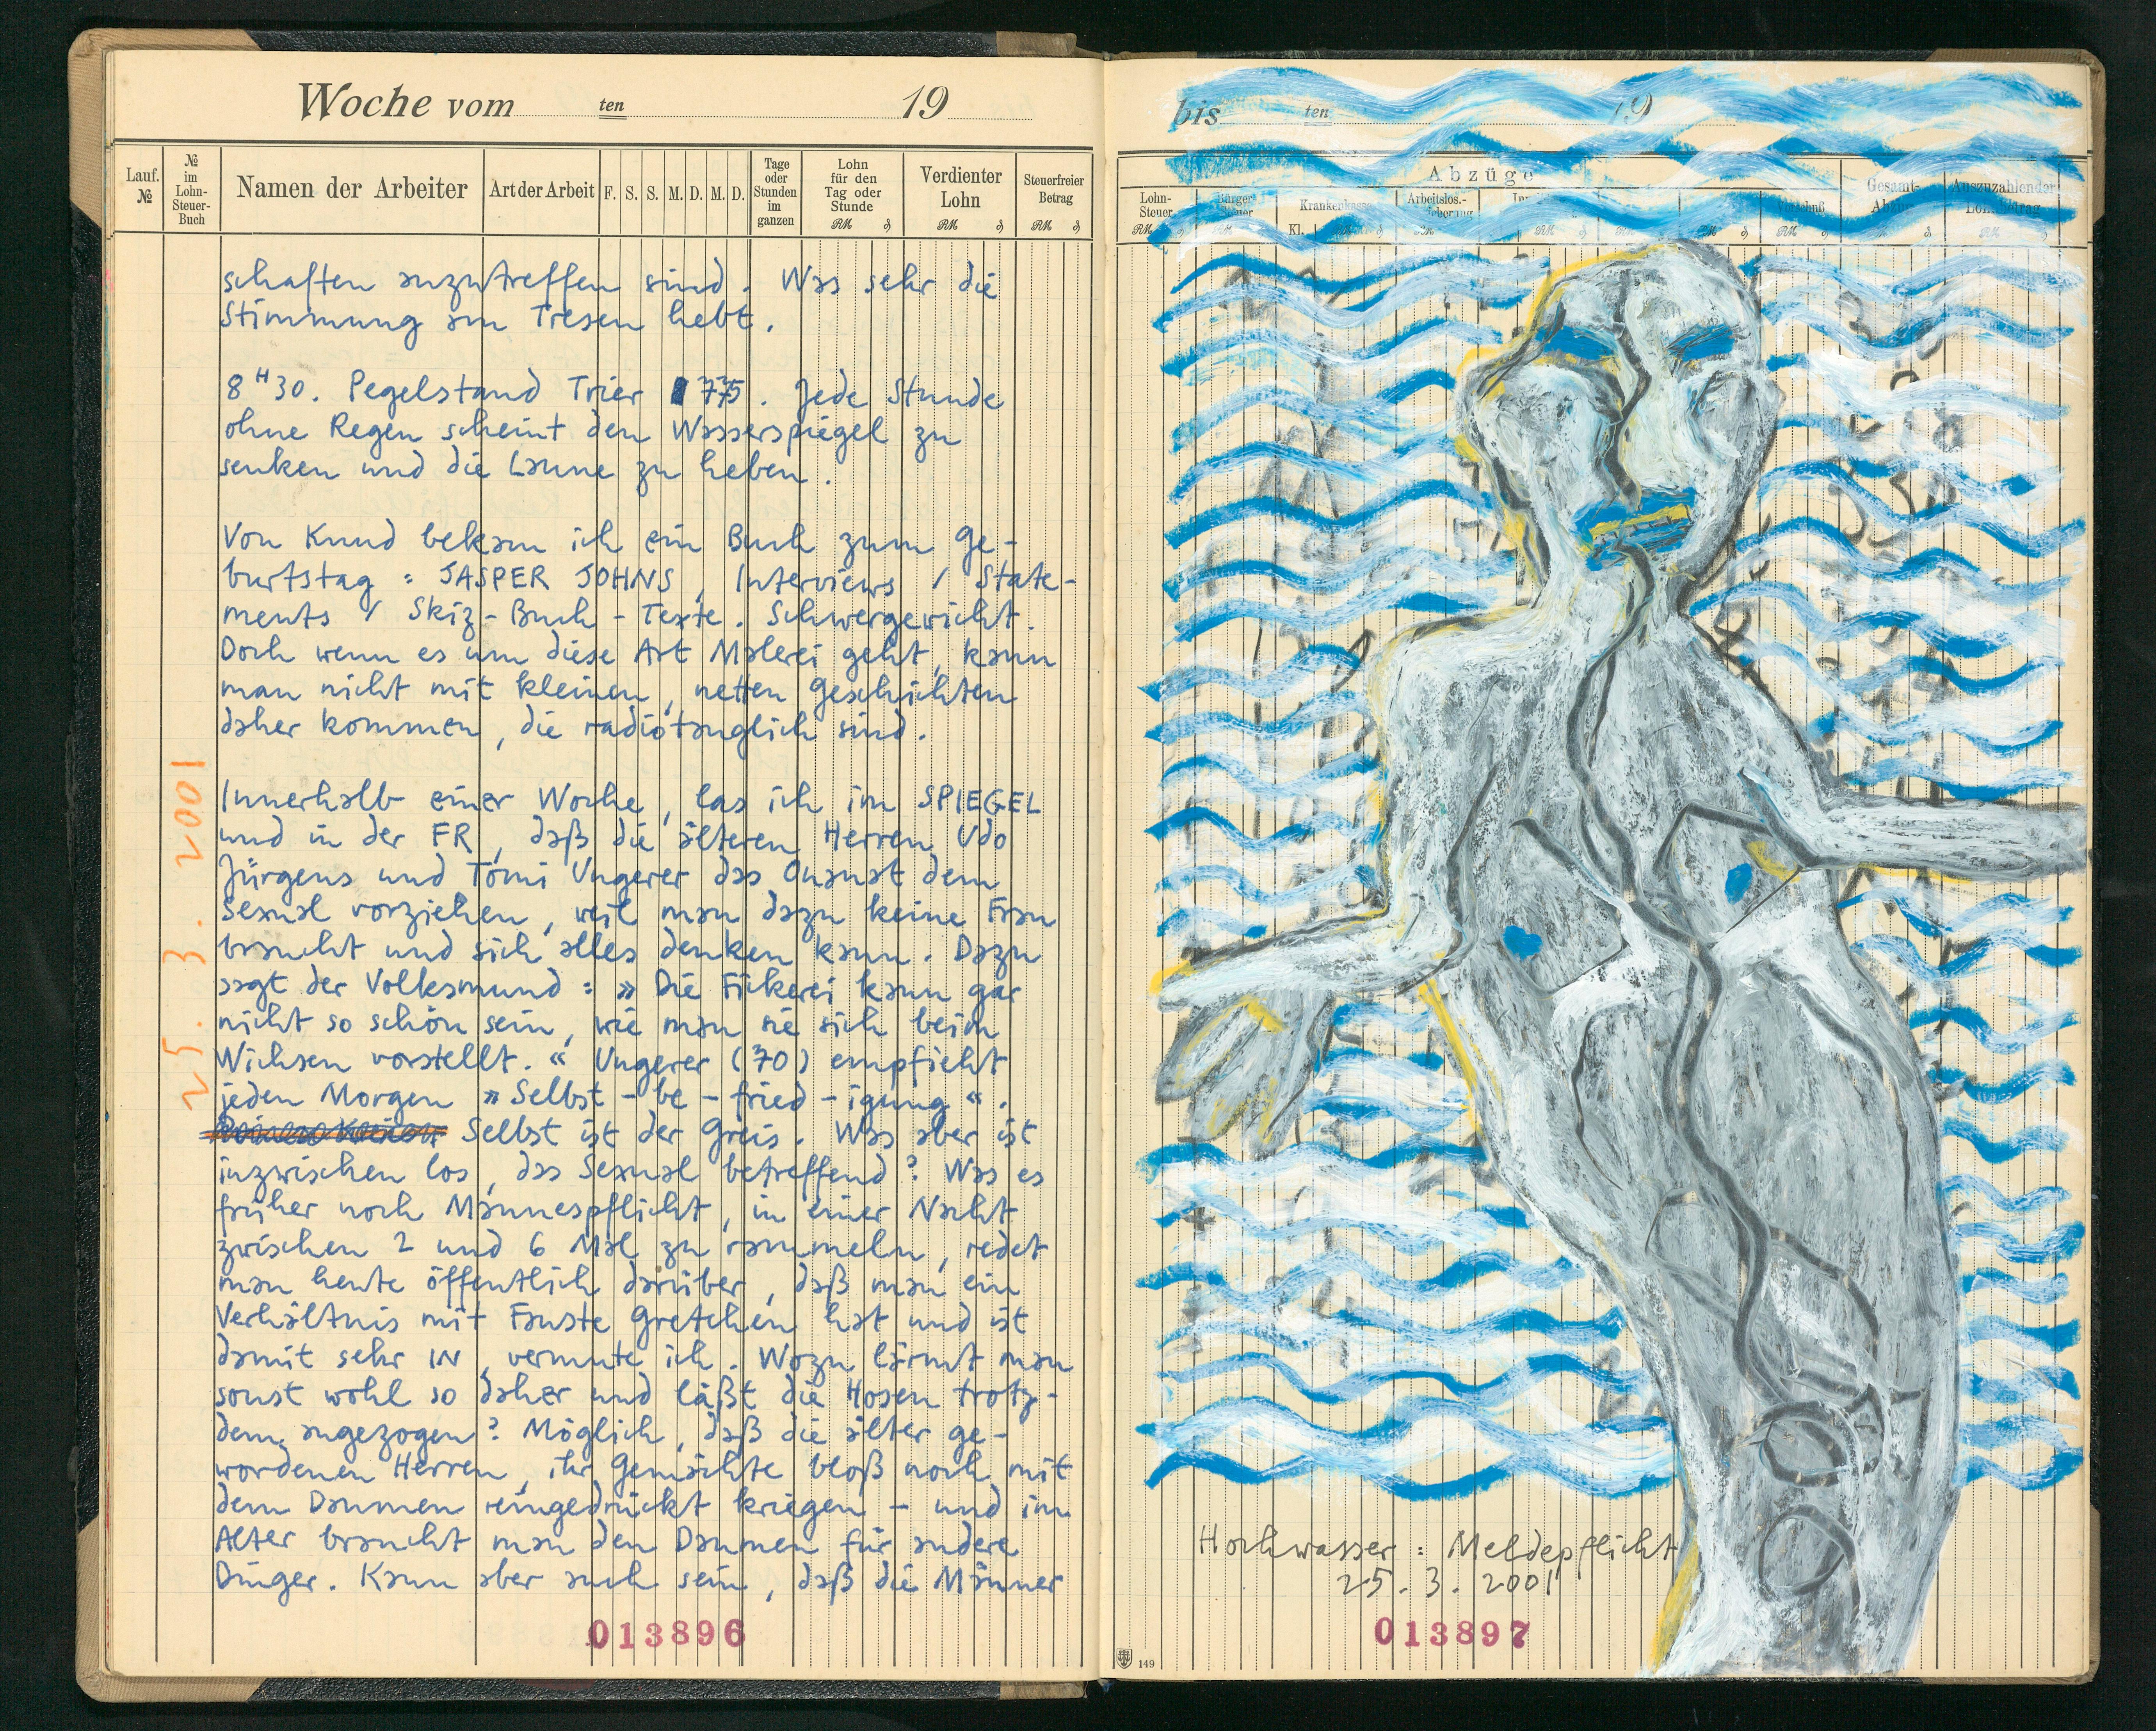 Woche vom ten 19
Lauf. №
№ im Lohn-Steuer-Buch
Namen der Arbeiter
Art der Arbeit
F. S. S. M. D. M. D.
Tage oder Stunden im ganzen
Lohn für den Tag oder Stunde
RM
Verdienter Lohn
RM
Steuerfreier Betrag
RM
schaften anzutreffen sind. Was sehr die
Stimmung am Tresen hebt.
8 H 30. Pegelstand Trier 775. Jede Stunde
ohne Regen scheint den Wasserspiegel zu
senken und die Laune zu heben.
Von Knud bekam ich ein Buch zum Ge-
burtstag: JASPER JOHNS, Interviews / State-
ments / Skiz-Buch-Texte. Schwergewicht.
Doch wenn es um diese Art Malerei geht, kann
man nicht mit kleinen, netten Geschichten
daher kommen, die radiotauglich sind.
25. 3. 2001
Innerhalb einer Woche, las ich im SPIEGEL
und in der FR, daß die älteren Herren Udo
Jürgens und Tomi Ungerer das Onanat dem
Sexual vorziehen, weil man dazu keine Frau
braucht und sich alles denken kann. Dazu
sagt der Volksmund: »Die Fickerei kann gar
nicht so schön sein, wie man sie sich beim
Wichsen vorstellt.« Ungerer (70) empfieht
jeden Morgen »Selbst-be-fried-igung«.
Selbst ist der Greis. Was aber ist
inzwischen los, das Sexual betreffend? Was es
früher noch Mannespflicht, in einer Nacht
zwischen 2 und 6 Mal zu rammeln, redet
man heute öffentlich darüber, daß man ein
Verhältnis mit Fauste Gretchen hat und ist
damit sehr IN, vermute ich. Wozu lärmt man
sonst wohl so daher und läßt die Hosen trotz-
dem angezogen? Möglich, daß die älter ge-
wordenen Herren, ihr Gemächte bloß noch mit
dem Daumen reingedrückt kriegen - und im
Alter braucht man den Daumen für andere
Dinger. Kann aber auch sein, daß die Männer
013896
bis ten 19
Abzüge
Lohn-Steuer
RM
Bürger-Steuer
Kl.
Krankenkasse
Arbeitslos.-
RM
RM
RM
RM
Gesamt-
Auszuzahlender
Hochwasser: Meldepflicht
25. 3. 2001
013897
149